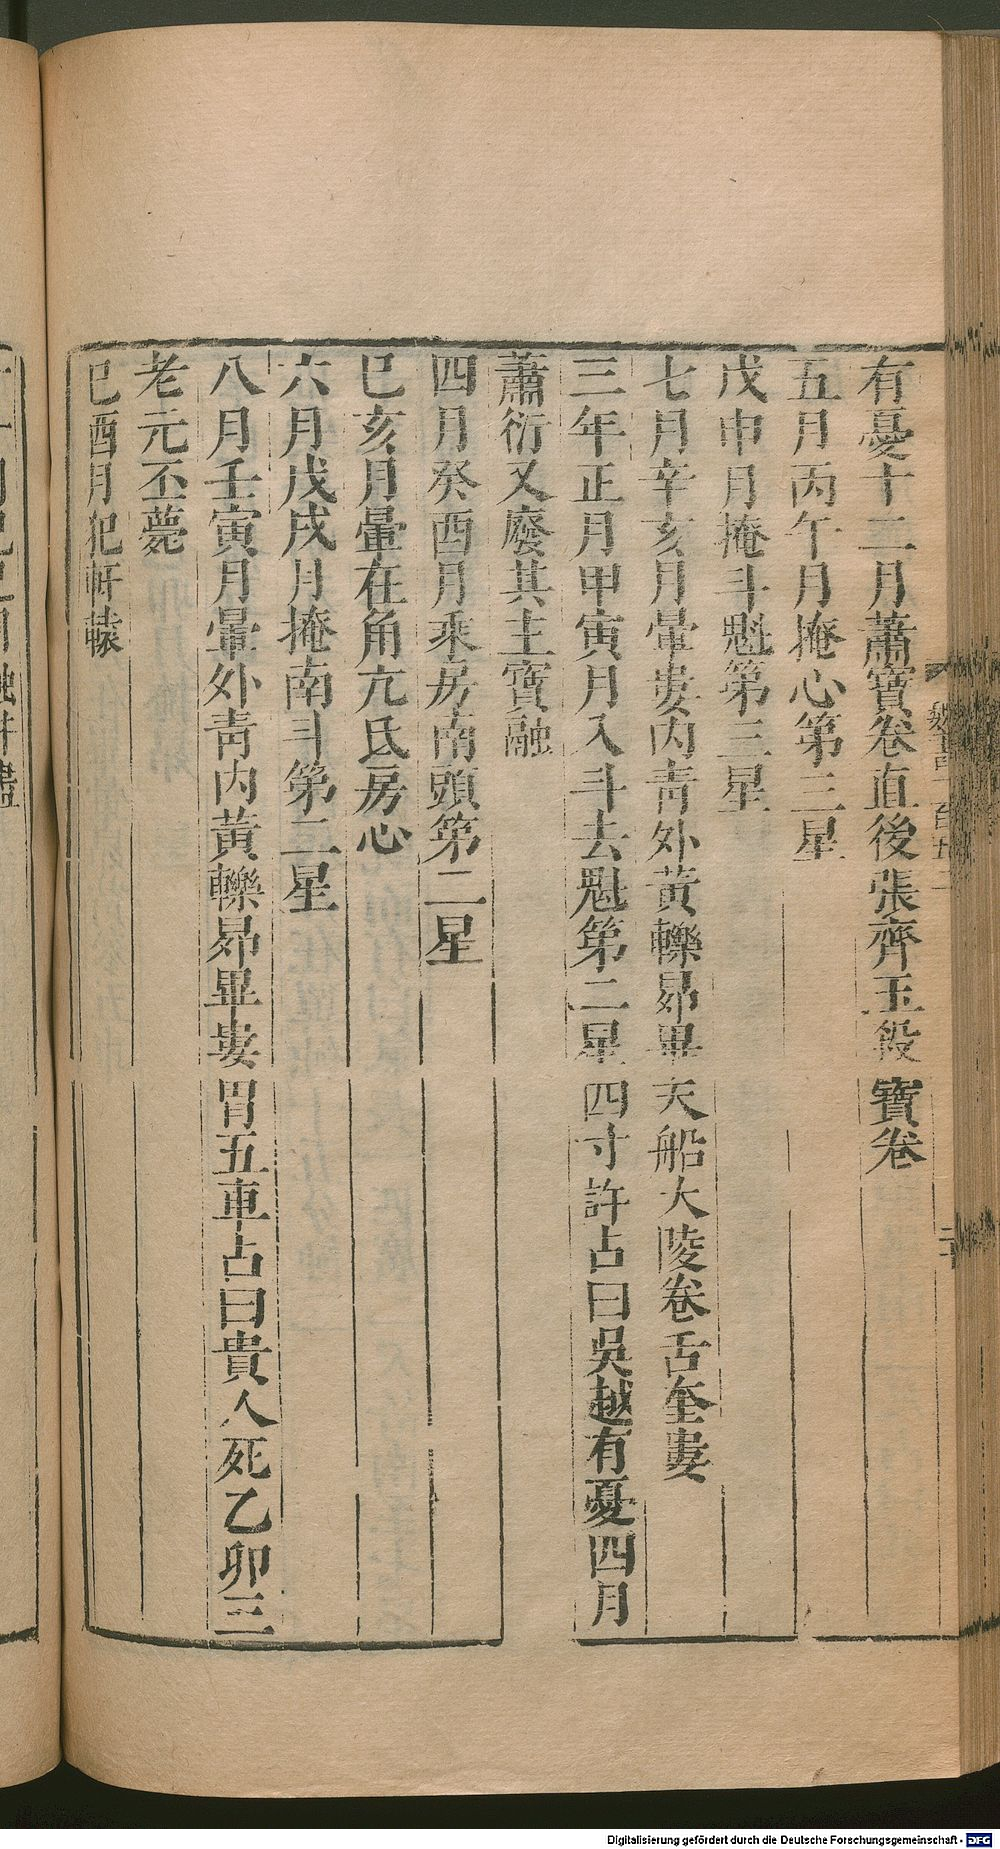 有憂十二月蕭寶卷直後張齊玉殺寶卷
五月丙午月掩心第三星
戊申月掩斗魁第三星
七月辛亥月暈婁內靑外黃轢昴畢天船大陵卷舌奎婁
三年正月甲寅月入斗去魁第二星四寸許占曰吳越有憂四月
蕭衍又廢其主寶融
四月癸酉月乘房南頭第二星
已亥月暈在角亢氐房心
六月戊戌月掩南斗第二星
八月壬寅月暈外靑內黃轢昴畢婁胃五車占曰貴人死乙卯三
老元丕薨
已酉月犯軒轅
Digitalisierung gefördert durch die Deutsche Forschungsgemeinschaft - DFG